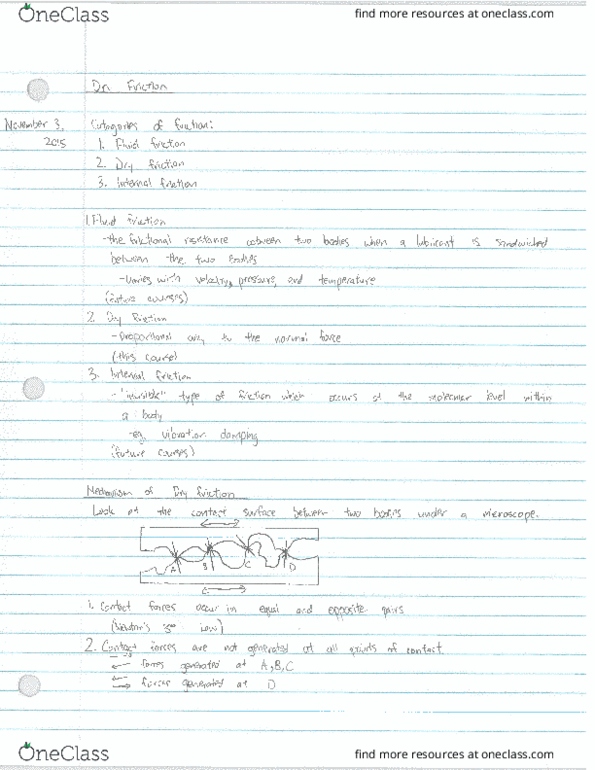 OneClass
find more resources at oneclass.com
Dry Friction
November 3,
2015
Categories of friction:
1. Fluid friction
2. Dry friction
3. Internal friction
1. Fluid friction
-the frictional resistance between two bodies when a lubricant is sandwiched
between the two bodies
-varies with velocity, pressure, and temperature
(future courses)
2. Dry friction
-proportional only to the normal force
(this course)
3. Internal friction
-"invisible" type of friction which occurs at the molecular level within
a body
-eg. vibration damping
(future courses)
Mechanism of Dry friction
Look at the contact surface between two bodies under a microscope.
A B C D
1. Contact forces occur in equal and opposite pairs
(Newton's 3rd law)
2. Contact forces are not generated at all points of contact
forces generated at A,B,C
forces generated at D
OneClass
find more resources at oneclass.com